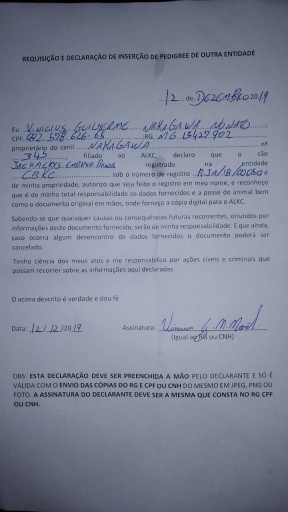 REQUISIÇÃO E DECLARAÇÃO DE INSERÇÃO DE PEDIGREE DE OUTRA ENTIDADE
12 de DEZEMBRO 2019
Eu VINICIUS GUILHERME NAKAGAWA NONATO,
CPF RG MG 15427902
proprietário do canil NAKAGAWA nº
345 filiado ao ALKC, declaro que o cão
registrado na entidade
CBKC sob o número de registro e
de minha propriedade, autorizo que seja feito o registro em meu nome, e reconheço
que é de minha total responsabilidade os dados fornecidos e a posse do animal bem
como o documento original em mãos, onde forneço a cópia digital para o ALKC.
Sabendo-se que quaisquer causas ou consequências futuras recorrentes, oriundos por
informações deste documento fornecido, serão de minha responsabilidade. E que ainda,
caso ocorra algum desencontro de dados fornecidos o documento poderá ser
cancelado.
Tenho ciência dos meus atos e me responsabilizo por ações cíveis e criminais que
possam recorrer sobre as informações aqui declaradas.
O acima descrito é verdade e dou fé
Data: 12/12/2019 Assinatura:
(Igual ao RG ou CNH)
OBS: ESTA DECLARAÇÃO DEVE SER PREENCHIDA A MÃO PELO DECLARANTE E SÓ É
VÁLIDA COM O ENVIO DAS CÓPIAS DO RG E CPF OU CNH DO MESMO EM JPEG, PNG OU
FOTO. A ASSINATURA DO DECLARANTE DEVE SER A MESMA QUE CONSTA NO RG CPF
OU CNH.